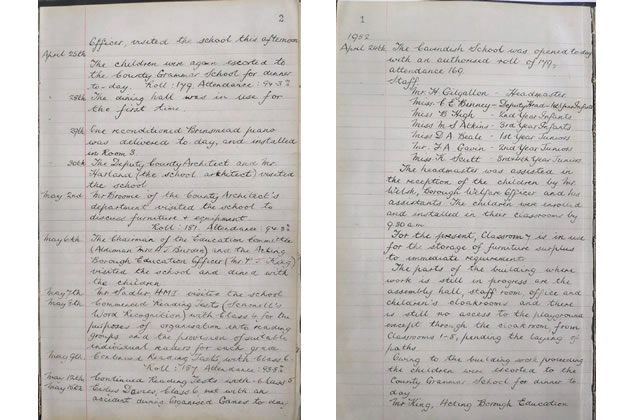 2
Officer, visited the school this afternoon.
April 25th The children were again escorted to
the County Grammar School for dinner
to-day. Roll: 179. Attendance: 94.3%
28th The dining hall was in use for
the first time.
29th One reconditioned Brinsmead piano
was delivered to-day, and installed
in Room 3.
30th The Deputy County Architect and Mr.
Harland (the school architect) visited
the school
May 2nd Mr Broome of the County Architect's
department visited the school to
discuss furniture & equipment.
Roll: 181. Attendance: 94.3%
May 6th The Chairman of the Education Committee
(Alderman Mrs) and the Acting
Borough Education Officer (Mr King)
visited the school and dined with
the children
May 7th Mr Sadler HMI visited the school
May 8th Commenced Reading Tests (Schonell's
Word Recognition) with Class 6, for the
purposes of organisation into reading
groups and the provision of suitable
individual readers for each group.
May 9th Continued Reading Tests with Class 6
Roll: 187 Attendance: 93.8%
Continued Reading Tests with Class 5
Davies Class 6 met with an
accident during Organised Games to-day.
1
1952
April 24th The Cavendish School was opened to-day
with an authorised roll of 179,
attendance 169.
Staff
Mr. H Gilgallon - Headmaster
Miss C E Benney - Deputy Head - 1st year Infants
Miss B High - 2nd Year Infants
Miss M S Atkins - 3rd Year Infants
Miss D A Beale - 1st Year Juniors
Mr. F A Gavin - 2nd Year Juniors
Miss K Scutt - 3rd & 4th Year Juniors
The headmaster was assisted in
the reception of the children by Mr
Welsh, Borough Welfare Officer and his
assistants. The children were enrolled
and installed in their classrooms by
9.30 a.m.
For the present, Classroom 7 is in use
for the storage of furniture surplus
to immediate requirements
The parts of the building where
work is still in progress are the
assembly hall, staff room, office and
children's cloakrooms and there
is still no access to the playground
except through the cloakroom from
Classrooms 1-3, pending the laying of
paths
Owing to the building work proceeding
the children were escorted to the
County Grammar School for dinner to
day.
Mr King, Acting Borough Education